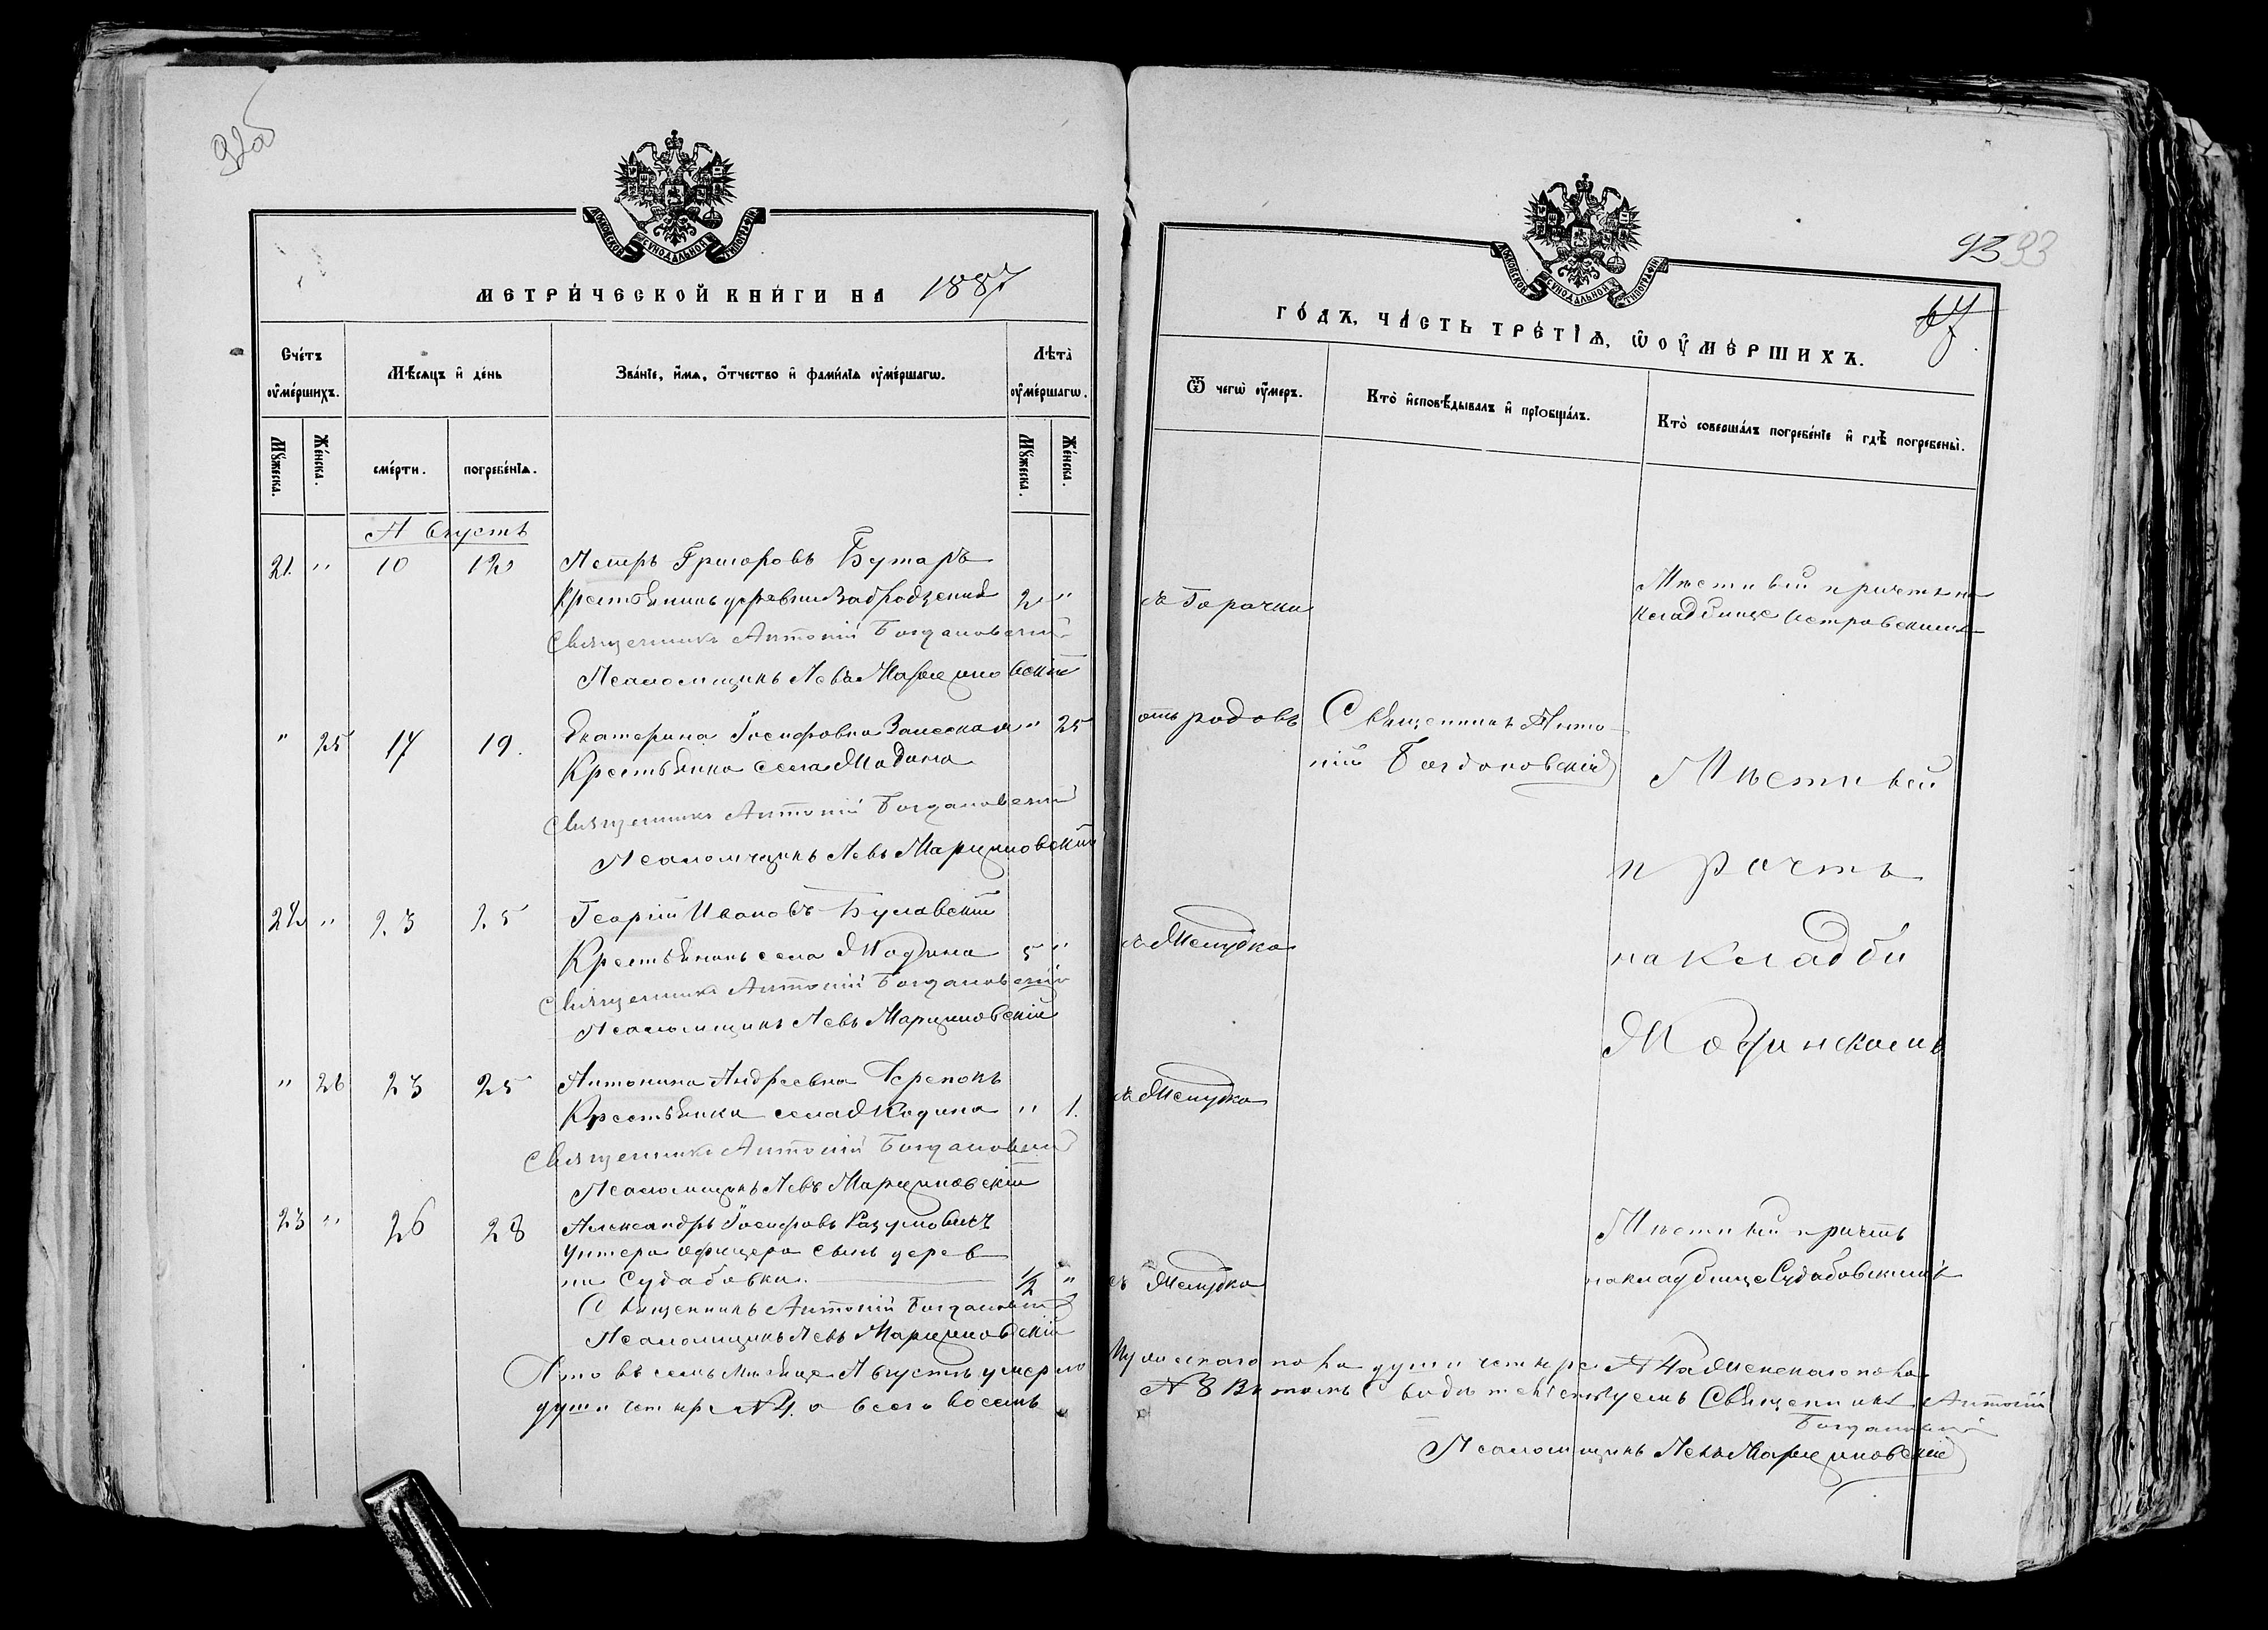 МОСКОВСКОЙ СѴНОДАЛЬНОЙ ТИПОГРАФІИ
МЕТРИ́ЧЕСКОЙ КНИ́ГИ НА 1887
Сче́тъ оумéршихъ.
Мѣ́сяцъ и де́нь
Зва́нїе, и́мя, ѻ́тчество и фами́лїя оумéршагѡ.
Лѣта̀ оумéршагѡ.
Мꙋ́жеска.
Же́нска.
сме́рти.
погребе́нїя.
Мꙋ́жеска.
Же́нска.
Августъ
21. " 10 12 Петръ Григоровъ Бутаръ
Крестьянинъ деревни 2 "
Священникъ Антоній Богдановскій
Псаломщикъ Левъ Марциновскій
" 25 17 19. Екатерина Іосифовна Заиская " 25
Крестьянка села Модина
Священникъ Антоній Богдановскій
Псаломщикъ Левъ Марциновскій
22 " 23 25 Георгій Ивановъ Булавскій
Крестьянинъ села Модина 5 "
Священникъ Антоній Богдановскій
Псаломщикъ Левъ Марциновскій
" 26 23 25 Антонина Андреевна Черепокъ
Крестьянка села Модина " 1.
Священникъ Антоній Богдановскій
Псаломщикъ Левъ Марциновскій
23 " 26 28 Александръ Іосифовъ Разумовичъ
Унтеръ офицера сынъ дерев
ни Судабовки. 1/2 "
Священникъ Антоній Богдановскій
Псаломщикъ Левъ Марциновскій
Что въ семъ мѣсяце Августѣ умерло
души четыре № 4. а всего восемь
МОСКОВСКОЙ СѴНОДАЛЬНОЙ ТИПОГРАФІИ
93
67
ГО́ДЪ, ЧА́СТЬ ТРЕ́ТЇѦ, Ѡ ОУМЕ́РШИХЪ.
Ѿ чегѡ̀ оу́меръ.
Кто̀ и҆сповѣ́дывалъ и҆ прїобща́лъ.
Кто̀ соверша́лъ погребе́нїе и҆ гдѣ̀ погребены̀.
Горячки
Мѣстный причтъ на
кладбище Островскимъ
отъ родовъ
Священникъ Анто-
ній Богдановскій
Мѣстный
причтъ
на кладби
Модинскомъ
Желудка
Желудка
Мѣстный причтъ
на кладбище Судабовскимъ
съ Желудка
Мужескаго пола души четыре № 4 а Женскаго пола
№ 8 Въ томъ Свидѣтельствуемъ Священникъ Антоній
Богдановскій
Псаломщикъ Левъ Марциновскій